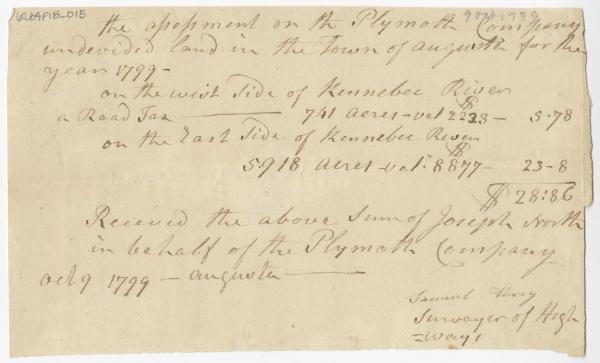 1264F1B-015
9 Oct 1799
the assessment on the Plymoth Company
undevided land in the Town of augusta for the
year 1799 -
on the wist Side of Kennebec River
a Road Tax — 741 acres - val $2223 - 5.78
on the East Side of Kennebec River
5918 acres - val $8877 - 23-8
$28:86
Receved the above Sum of Joseph North
in behalf of the Plymoth Company
oct 9 1799 - augusta —
Samuel
Surveyor of High
=ways